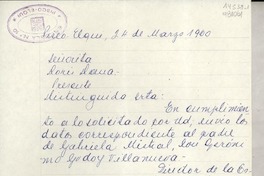 Pisco Elqui, 24 de Marzo 1960
Señorita
Doris Dana.
Presente
Distinguida srta:
En cumplimien
to a lo solicitado por Ud, envío los
datos correspondiente al padre
de Gabriela Mistral, don Geróni
mo Godoy Villanueva.
de la Es